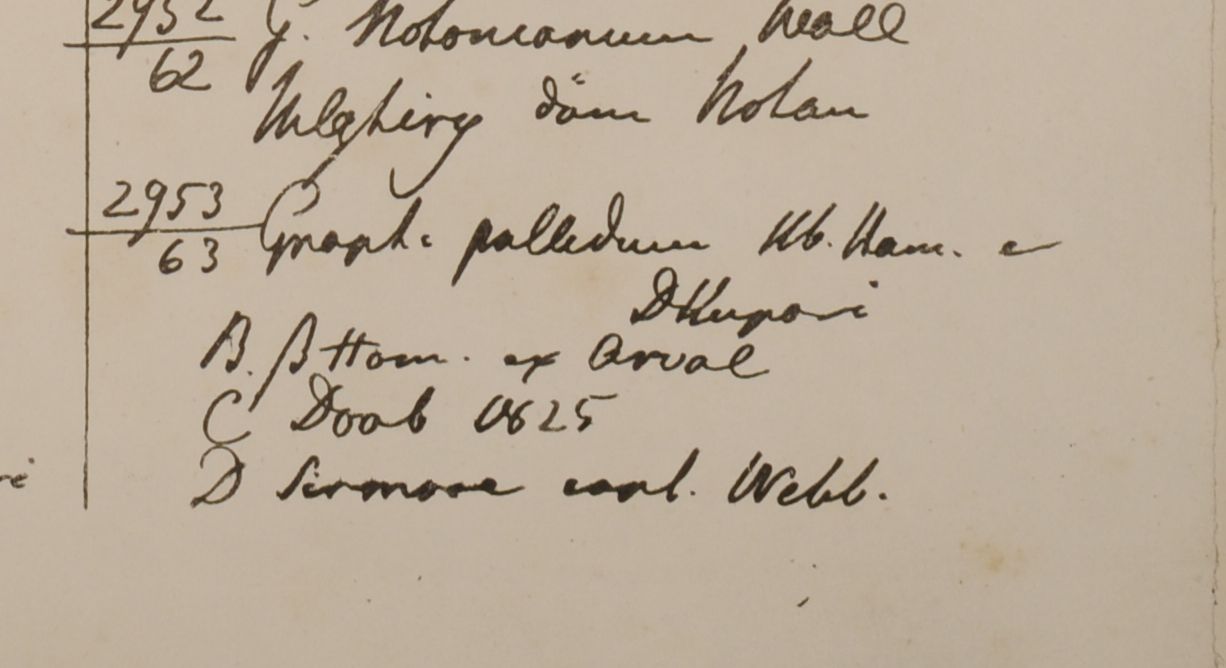 2952 G. Notonianum Wall
62
Nilghiry döm Notan
2953
63 Graph. pallidum Hb. Ham. e
DKupori
B. β Ham. ex Arval
C Doab 1825
D Sirmore Webb.